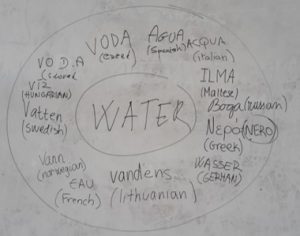 VODA
(Czech)
AGUA
(Spanish)
ACQUA
(italian)
ILMA
(Maltese)
Boga (russian)
Νερό (NERO)
(Greek)
WASSER
(GERMAN)
vandens
(lithuanian)
EAU
(French)
Vann
(norwegian)
Vatten
(Swedish)
VÍZ
(HUNGARIAN)
VODA
WATER